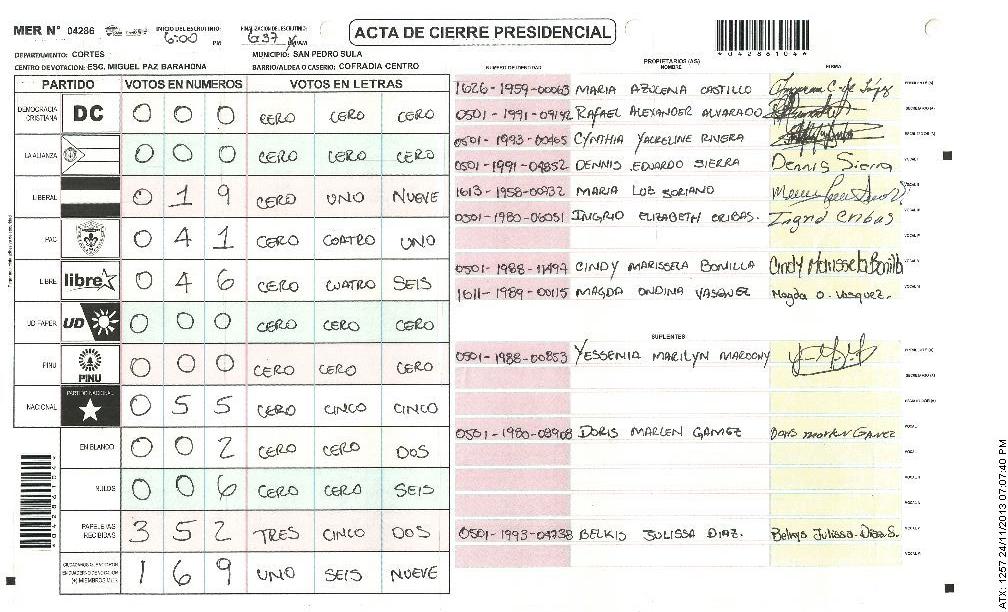 MER N° 04286
INICIO DEL ESCRUTINIO: 6:00 PM
FINALIZACION DEL ESCRUTINIO: 6:37
ACTA DE CIERRE PRESIDENCIAL
*04286104*
DEPARTAMENTO: CORTES
MUNICIPIO: SAN PEDRO SULA
CENTRO DE VOTACION: ESC. MIGUEL PAZ BARAHONA
BARRIO/ALDEA O CASERIO: COFRADIA CENTRO
PARTIDO VOTOS EN NUMEROS VOTOS EN LETRAS
DEMOCRACIA CRISTIANA DC 0 0 0 CERO CERO CERO
LA ALIANZA 0 0 0 CERO CERO CERO
LIBERAL 0 1 9 CERO UNO NUEVE
PAC 0 4 1 CERO CUATRO UNO
LIBRE libre 0 4 6 CERO CUATRO SEIS
UD FAPER UD 0 0 0 CERO CERO CERO
PINU PINU 0 0 0 CERO CERO CERO
NACIONAL PARTIDO NACIONAL 0 5 5 CERO CINCO CINCO
EN BLANCO 0 0 2 CERO CERO DOS
NULOS 0 0 6 CERO CERO SEIS
PAPELETAS RECIBIDAS 3 5 2 TRES CINCO DOS
1 6 9 UNO SEIS NUEVE
PROPIETARIOS (AS)
NUMERO DE IDENTIDAD NOMBRE FIRMA
1626-1959-00063 MARIA AZUCENA CASTILLO
0501-1991-09192 RAFAEL ALEXANDER ALVARADO
0501-1993-00465 CYNTHIA YACKELINE RIVERA
0501-1991-04852 DENNIS EDUARDO SIERRA Dennis Sierra
1613-1958-00932 MARIA LUZ SORIANO
0501-1980-06051 INGRID ELIZABETH CRIBAS. Ingrid Cribas
CINDY MARISSELA BONILLA Cindy Marissela Bonilla
1611-1989-00115 MAGDA ONDINA VASQUEZ Magda O. Vasquez.
SUPLENTES
0501-1988-00853 YESSENIA MARILYN
0501-1980-08908 DORIS MARLEN GAMEZ Doris Marlen Gamez
0501-1993-04738 BELKIS JULISSA DIAZ. Belkys Julissa Diaz S.
*04286104*
ATX: 1257 24/11/2013 07:07:40 PM